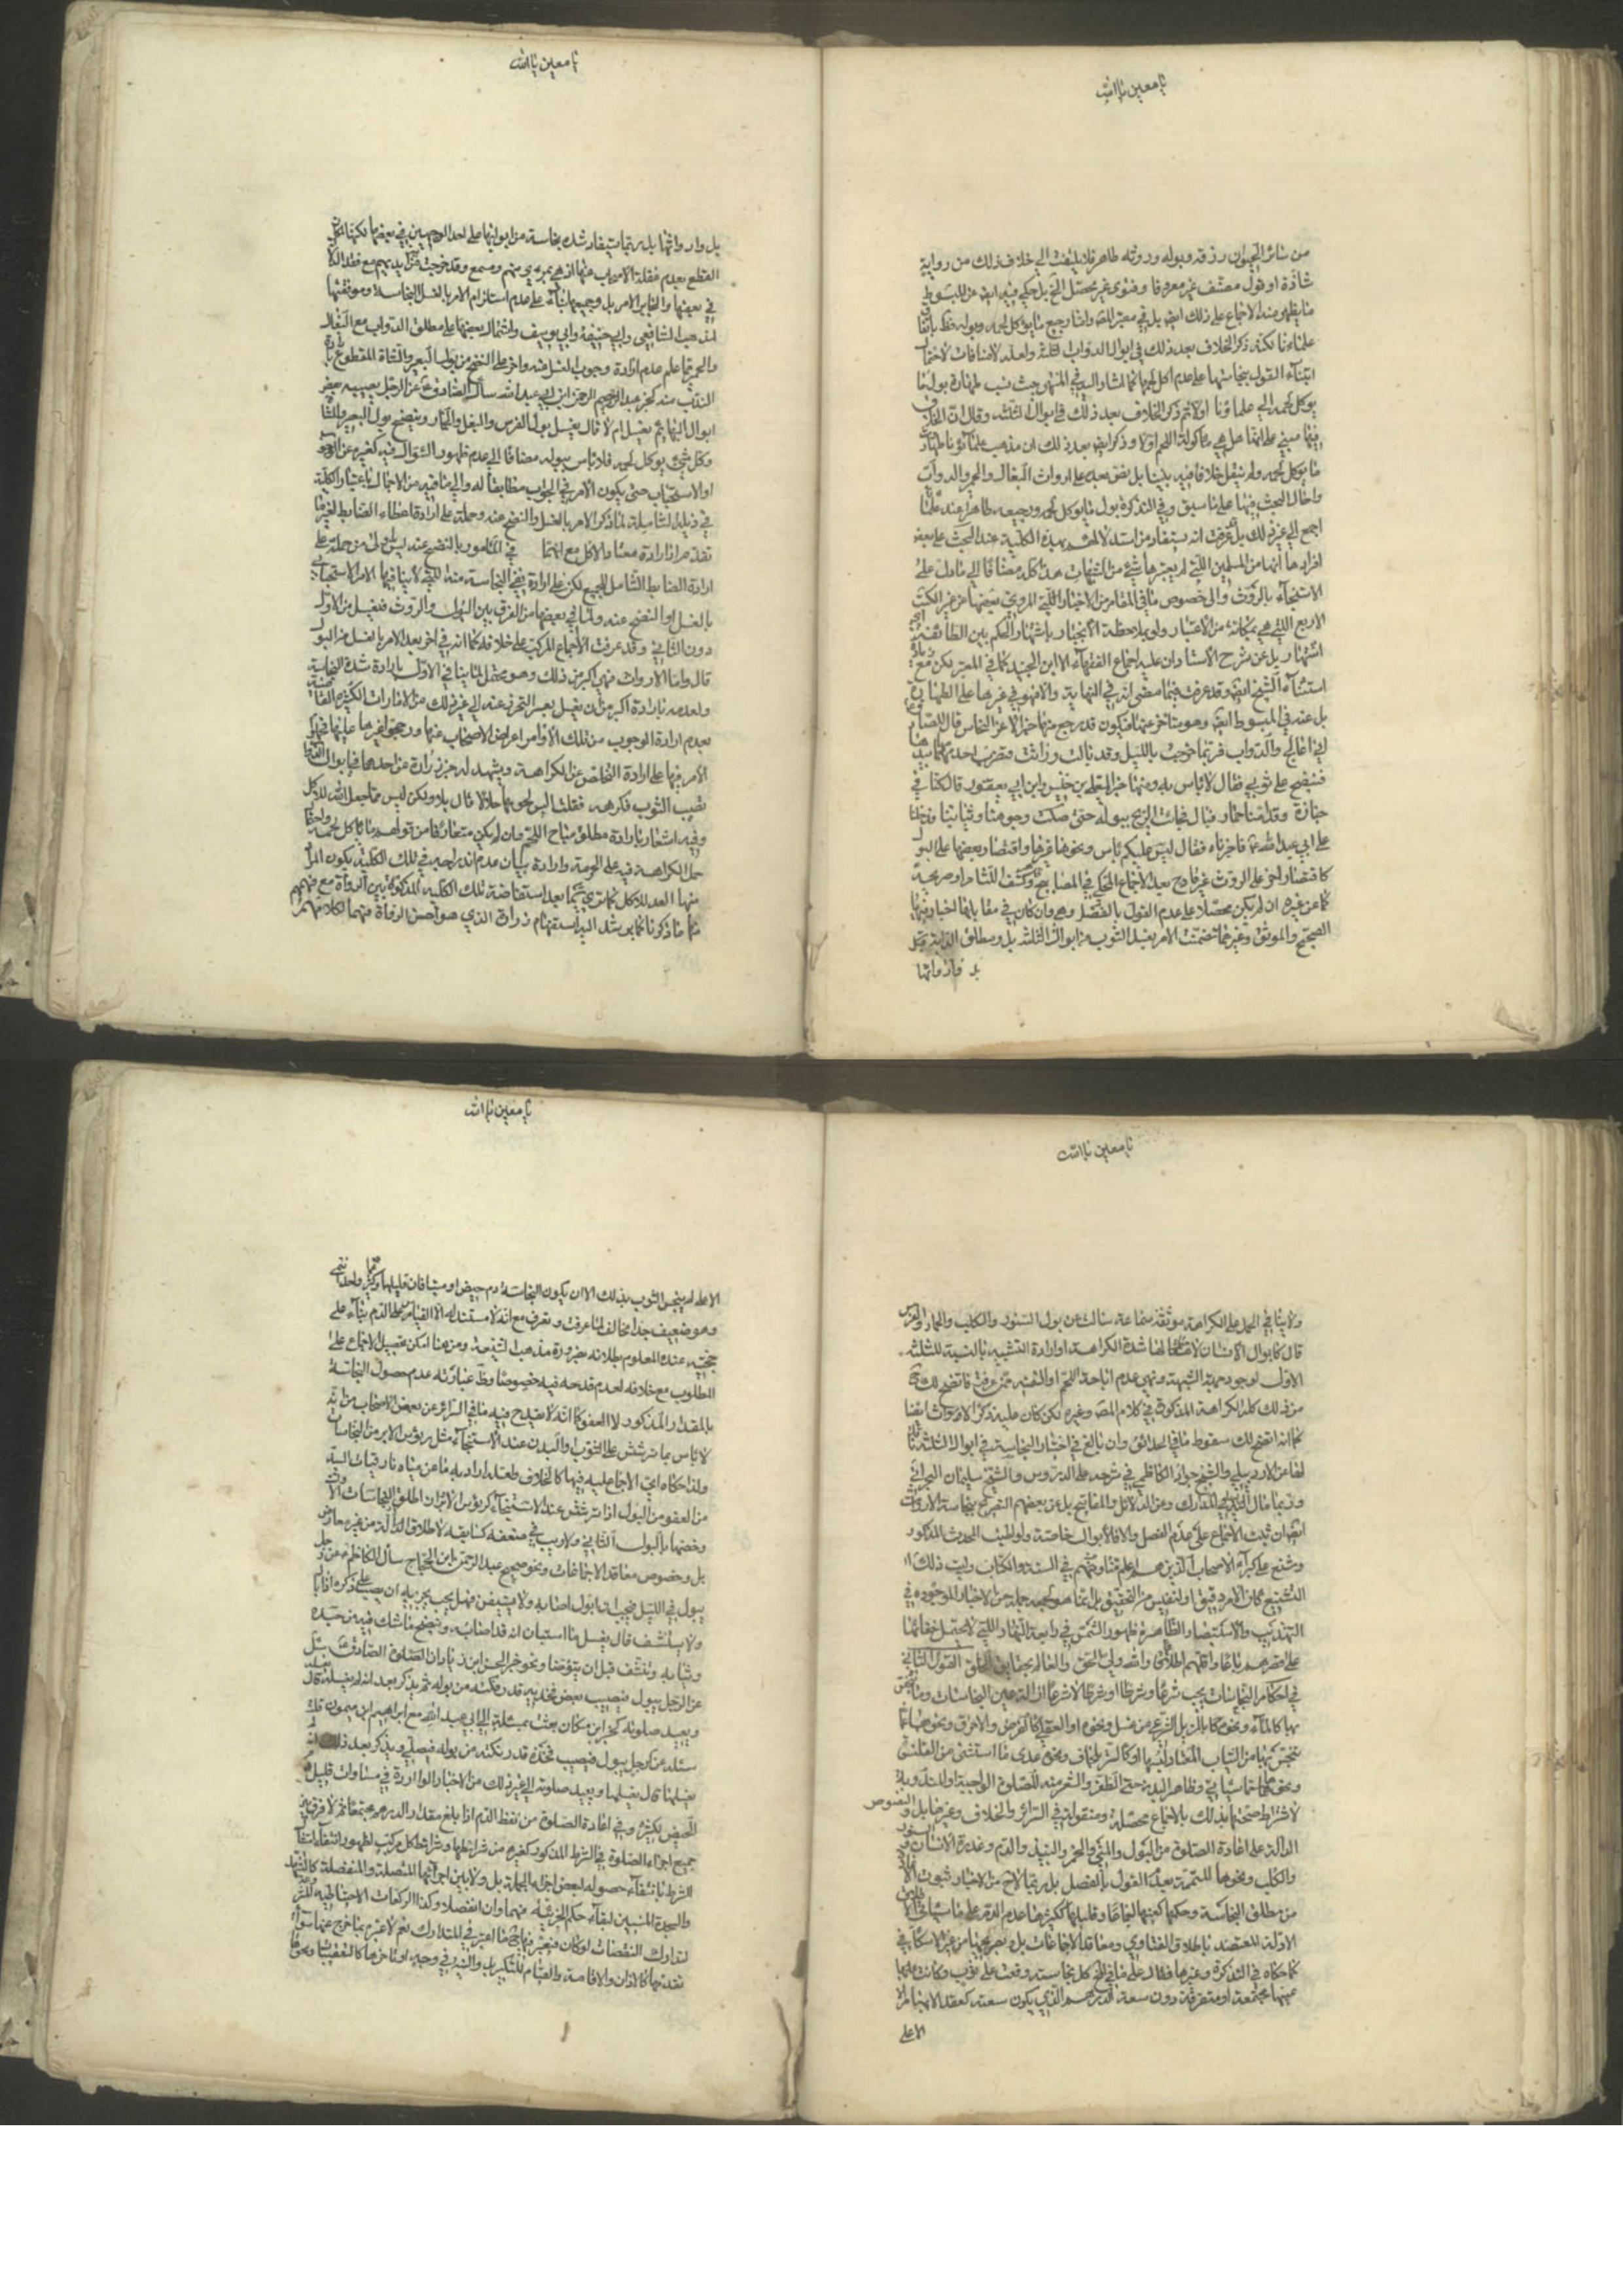 يا معين يا الله
من سائر الحيوان ذرقه وبوله وروثه طاهر فلا يلتفت الى خلاف ذلك من رواية
شاذة او قول مصنف غير معروف او فتوى غير محصل الخ بل حكى فيه ايضا عن المبسوط
ما يظهر منه الاجماع على ذلك ايضا بل في معتبر المص واما رجيع ما يؤكل لحمه وبوله فط باتفاق
علمائنا لكنه ذكر الخلاف بعد ذلك في ابوال الدواب الثلثة ولعله لاضافات لاحتمال
ابتناء القول بنجاستها على عدم اكل لحمها كما اشار اليه في المنتهى حيث نسب طهارة بول ما
يؤكل لحمه الى علماؤنا اولا ثم ذكر الخلاف بعد ذلك في ابوال الثلثة وقال ان الخلاف
فيها مبني على انها هل هي مأكولة اللحم اولا وذكر ايضا بعد ذلك ان مذهب علمائنا طهارة
ما يؤكل لحمه ولم ينقل خلافا فيه بيننا بل نص بعد على ارواث البغال والحمير والدواب
واحال البحث فيها على ما سبق وفي التذكرة بول ما يؤكل لحمه ورجيعه طاهر عند علمائنا
اجمع الى غير ذلك بل عرفت انه يستفاد من استدلالهم بهذه الكلية عند البحث على بعض
افرادها انها من المسلمين اللتي لم يعترها شيء من الشبهات هذا كله مضافا الى ما دل على
الاستنجاء بالروث والى خصوص ما في المقام من الاخبار اللتي المروي بعضها عن غير الكتب
الاربع اللتي هي بمكانة من الاعتبار ولو بملاحظة الانجبار باشتهار الحكم بين الطائفة
اشتهارا بل عن شرح الاستاد ان عليه اجماع الفقهاء الا ابن الجنيد كما في المعتبر لكن مع زيادة
استثناء الشيخ ايضا وقد عرفت فيما مضى انه في النهاية والا فهو في غيرها على الطهارة
بل عنه في المبسوط ايضا وهو متاخر عنها فيكون قد رجع عنها خبر الاغر النخاس قال للصادق ع
اني اعالج الدواب فربما خرجت بالليل وقد بالت وراثت فتضرب احديهما بيدها
فينضح على ثوبي فقال لا باس به ومنها خبر المعلى بن خنيس وابن ابي يعفور قال كنا في
جنازة وقدامنا حمار فبال فجائت الريح ببوله حتى صكت وجوهنا وثيابنا فدخلنا
على ابي عبد الله ع فاخبرناه فقال ليس عليكم باس ونحوها غيرها واقتصار بعضها على البول
كاقتصار اخر على الروث غير قادح بعد الاجماع المحكي في المصابيح وكشف اللثام او صريحه
كما عن غيره ان لم يكن محصلا على عدم القول بالفصل وهي وان كان في مقابلها اخبار فيها
الصحيح والموثق وغيرهما تضمنت الامر بغسل الثوب من ابوال الثلثة بل ومطلق الدابة وقبل
بل وارواثها

يا معين يا الله
بل وارواثها بل ربما يستفاد شدة نجاسة من ابوالها على احد الوجهين في بعضها لكنها لمكان
القطع بعدم غفلة الاصحاب عنها اذ هي بمرءى منهم ومسمع وقد خرجت من ايديهم مع فقد الامر
في بعضها والتخاير الامر بل وجميعها بناء على عدم استلزام الامر بالغسل النجاسة وموافقتها
لمذهب الشافعي وابي حنيفة وابي يوسف واشتمال بعضها على مطلق الدواب مع البغال
والحمير مما علم عدم ارادة وجوب الغسل منه واخر على النضح من بول البعير والشاة المقطوع بارادة
الندب منه كخبر عبد الرحمن ابن ابي عبد الله سأل الصادق ع عن الرجل يصيبه بعض
ابوال البهائم يغسل ام لا قال يغسل بول الفرس والبغل والحمار وينضح بول البعير والشاة
وكل شيء يؤكل لحمه فلا باس ببوله مضافا الى عدم ظهور السؤال فيه كغيره عن الوجوب
او الاستحباب حتى يكون الامر في الجواب مطابقا له والى ما فيه من الاجمال باعتبار الكلية
في ذيله الشاملة لما ذكر الامر بالغسل والنضح عنه وحمله على ارادة اعطاء الضابط لغير ما
تقدم ارادة معتاد الاكل مع انها في المامور بالنضح عنه ليس باولى من حمله على
ارادة الضابط الشامل للجميع لكن على ارادة نفي النجاسة منه اللتي لا ينافيها الامر الاستحبابي
بالغسل او النضح عنه ولما في بعضها من الفرق بين البول والروث فيغسل من الاول
دون الثاني وقد عرفت الاجماع المركب على خلافه كما انه في اخر بعد الامر بالغسل من البول
قال واما الارواث فهي اكثر من ذلك وهو محتمل لما ينافي الاول بارادة شدة النجاسة
ولعدمه بارادة اكبر من ان يغسل بعسر التحرز عنه الى غير ذلك من الامارات الكثيرة القاضية
بعدم ارادة الوجوب من تلك الاوامر اعراض الاصحاب عنها ورجحوا غيرها عليها فيكون
الامر فيها على ارادة التخلص عن الكراهة ويشهد له خبر زرارة عن احدهما في ابوال الدواب
تصيب الثوب فكرهه فقلت اليس لحومها حلالا قال بلى ولكن ليس مما جعل الله للاكل
وفيه اشعار بارادة مطلق مباح اللحم وان لم يكن متعارفا من قولهم ما يؤكل لحمه واحتمال
حمل الكراهة فيه على الحرمة وارادة بيان عدم اندراجه في تلك الكلية بكون المراد
منها المعد للاكل كما ترى سيما بعد استفاضة تلك الكلية المذكورة بين الرواة مع فهمهم
منها ما ذكرنا كما يرشد اليه استفهام زرارة الذي هو احسن الرواة فهما لكلامهم

يا معين يا الله
ولا ينافي الحمل على الكراهة موثقة سماعة سالته عن بول السنور والكلب والحمار والفرس
قال كابوال الانسان لاحتمالها شدة الكراهة او ارادة التشبيه بالنسبة للثلثة
الاول لوجود جهة الشبهة وتهي عدم اباحة اللحم او التقية عمن عرفت فاتضح لك
من ذلك كله الكراهة المذكورة في كلام المص وغيره لكن كان عليه ذكر الارواث ايضا
كما انه اتضح لك سقوط ما في الحدائق وان بالغ في اختيار النجاسة في ابوال الثلثة تبعا
لها عن الاردبيلي والشيخ جواد الكاظمي في شرحه على الدروس والشيخ سليمان البحراني
وربما مال اليه في المدارك وعن الدلائل والمفاتيح بل عن بعضهم التصريح بنجاسة الارواث
ايضا ان ثبت الاجماع على عدم الفصل والا فالابوال خاصة ولو لطيف المحدث المذكور
وشنع على كبراء الاصحاب الذين هم اعلم منا ومنهم في السنة والكتاب وليت ذلك
التشنيع كان لامر دقيق او لنفيس من التحقيق بل انما هو لجمعه جملة من الاخبار الموجودة في
التهذيب والاستبصار الظاهرة ظهور الشمس في رابعة النهار اللتي لا يحتمل خفائها
على اقصرهم باعا واقلهم اطلاعا والله ولي الحق والعالم بحقايق الخلق القول الثاني
في احكام النجاسات يجب شرعا وشرطا او شرطا لا شرعا ازالة عين النجاسات وما تنجس
بها كالماء ونحوه بالمزيل الشرعي من غسل ونحوه او العقلي كالقرض والاحراق ونحوهما عما
يتنجس بها من الثياب المعتاد لبسها او كالستر بلحاف ونحوه عدى ما استثنى من القلنسوة
ونحوها مما سياتي وظاهر البدن حتى الظفر والشعر منه للصلوة الواجبة او المندوبة
لاشتراط صحتها بذلك بالاجماع محصله ومنقوله في السرائر والخلاف وغيرهما بل والنصوص
الدالة على اعادة الصلوة من البول والمني والخمر والنبيذ والدم وعذرة الانسان والسنور
والكلب ونحوها المتممة بعدم القول بالفصل بل ربما لاح من الاخبار ثبوت ذلك
من مطلق النجاسة وحكمها كعينها اجماعا وقليلها ككثيرها عدم الدم على ما سياتي
الادلة المعتضد باطلاق الفتاوي ومعاقد الاجماعات بل وتصريحها من غير الاسكافي
كما حكاه في التذكرة وغيرها فقال على ما في الخ كل نجاسة وقعت على ثوب وكانت عليها
عينها مجتمعة او متفرقة دون سعة الدرهم الذي يكون سعته كعقد الابهام
الاعلى

يا معين يا الله
الاعلى لم ينجس الثوب بذلك الا ان يكون النجاسة دم حيض او منيا فان قليلها وكثيرها واحد انتهى
وهو ضعيف جدا مخالف لما عرفت وتعرف مع انه لا مستند له الا القياس على الدم بناء على
حجيته عنده المعلوم بطلانه بضرورة مذهب الشيعة ومن هنا امكن تحصيل الاجماع على
المطلوب مع خلافه لعدم قدحه فيه خصوصا وظ عبارته عدم حصول النجاسة
بالمقدار المذكور لا العفو كما انه لا يقدح فيه ما في السرائر عن بعض الاصحاب من انه
لا باس بما ترشش على الثوب والبدن عند الاستنجاء مثل رؤس الابر من النجاسات
ولذا حكاه اعني الاجماع عليه فيها كالخلاف ولعله اراد به ما عن ميافارقيات السيد
من العفو من البول اذا ترشش عند الاستنجاء كرؤس الابر وان اطلق النجاسات الاول
وخصها بالبول الثاني ولا ريب في ضعفه كسابقه لاطلاق الدالة من غير معارض
بل وخصوص معاقد الاجماعات ونحو صحيح عبد الرحمن ابن الحجاج سأل الكاظم ع عن رجل
يبول في الليل فيحسب ان البول اصابه ولا يستيقن فهل يجب يجزيه ان يصب على ذكره اذا بال
ولا ينشف قال يغسل ما استبان انه قد اصابه وينضح ما شك فيه من جسده
وثيابه وتنشف قبل ان يتوضأ ونحو خبر الحسن ابن زياد ان الصادق ع سئل
عن الرجل يبول فيصيب بعض فخذيه قدر نكتة من بوله ثم يذكر بعد انه لم يغسله قال يغسله
ويعيد صلوته كخبر ابن مسكان بعثت بمسئلة الى ابي عبد الله مع ابراهيم ابن ميمون قلت
سئله عن الرجل يبول فيصيب فخذه قدر نكتة من بوله فيصلي ويذكر بعد ذلك انه
يغسلها قال يغسلها ويعيد صلوته الى غير ذلك من الاخبار الواردة في مساوات قليل دم
الحيض بكثيره وفي اعادة الصلوة من نقط الدم اذا بلغ مقدار الدرهم مجتمعا ثم لا فرق بين
جميع اجزاء الصلوة في الشرط المذكور كغيره من شرائطها وشرائط كل مركب لظهور انتفاء
الشرط بانتفاء حصوله لبعض اجزاء الجملة بل ولا بين اجزائها المتصلة والمنفصلة كالتشهد
والسجدة المنسيين لبقاء حكم الجزئية فيهما وان انفصلا وكذا الركعات الاحتياطية
لتدارك النقصان او كان فيعتبر فيها ما اعتبر في المتدارك نعم لا عبرة بما خرج عنها سواء
تقدمها كالاذان والاقامة والقيام للتكبيرات والنية في وجه او تاخرها كالتعقيبات ونحوها